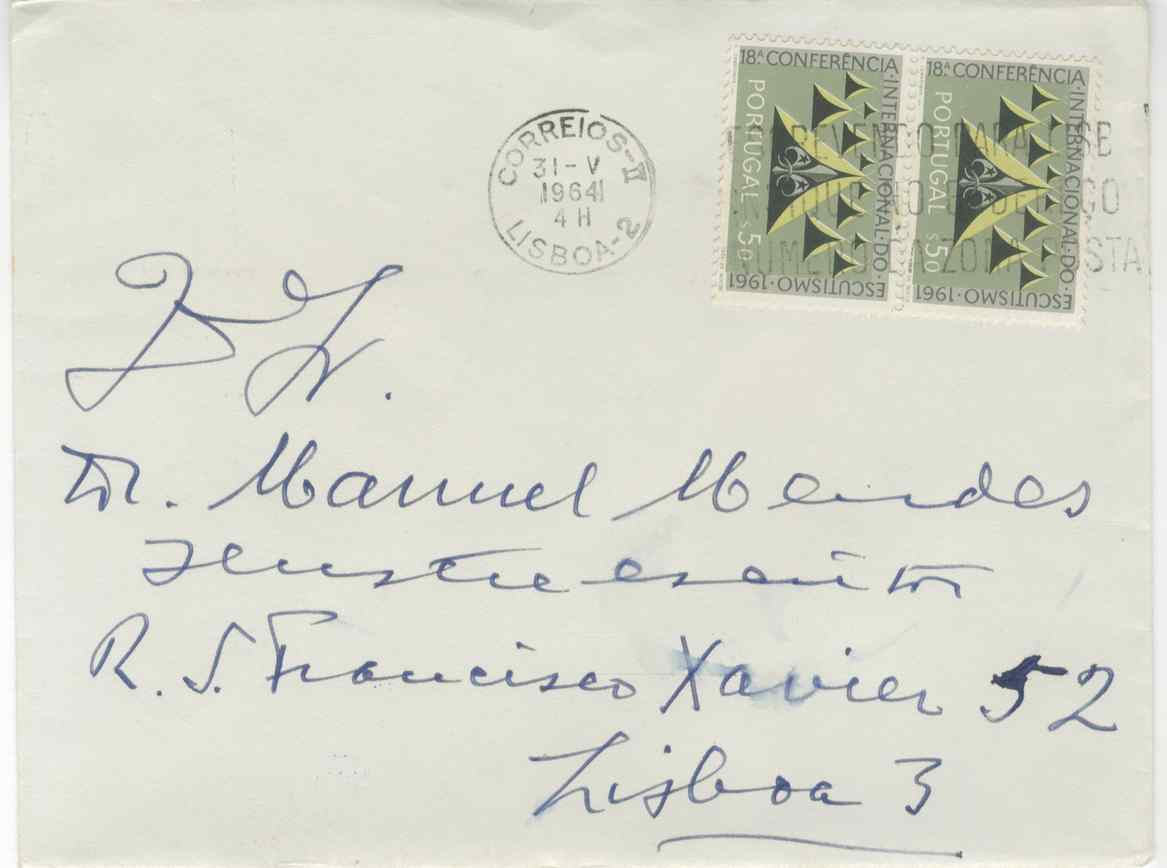 CORREIOS-II
31-V
1964
4 H
LISBOA-2
18.ª CONFERÊNCIA·INTERNACIONAL·DO·ESCUTISMO·1961
PORTUGAL $50
18.ª CONFERÊNCIA·INTERNACIONAL·DO·ESCUTISMO·1961
PORTUGAL $50
Dr. Manuel Mendes
Ilustre escritor
R. S. Francisco Xavier 52
Lisboa 3